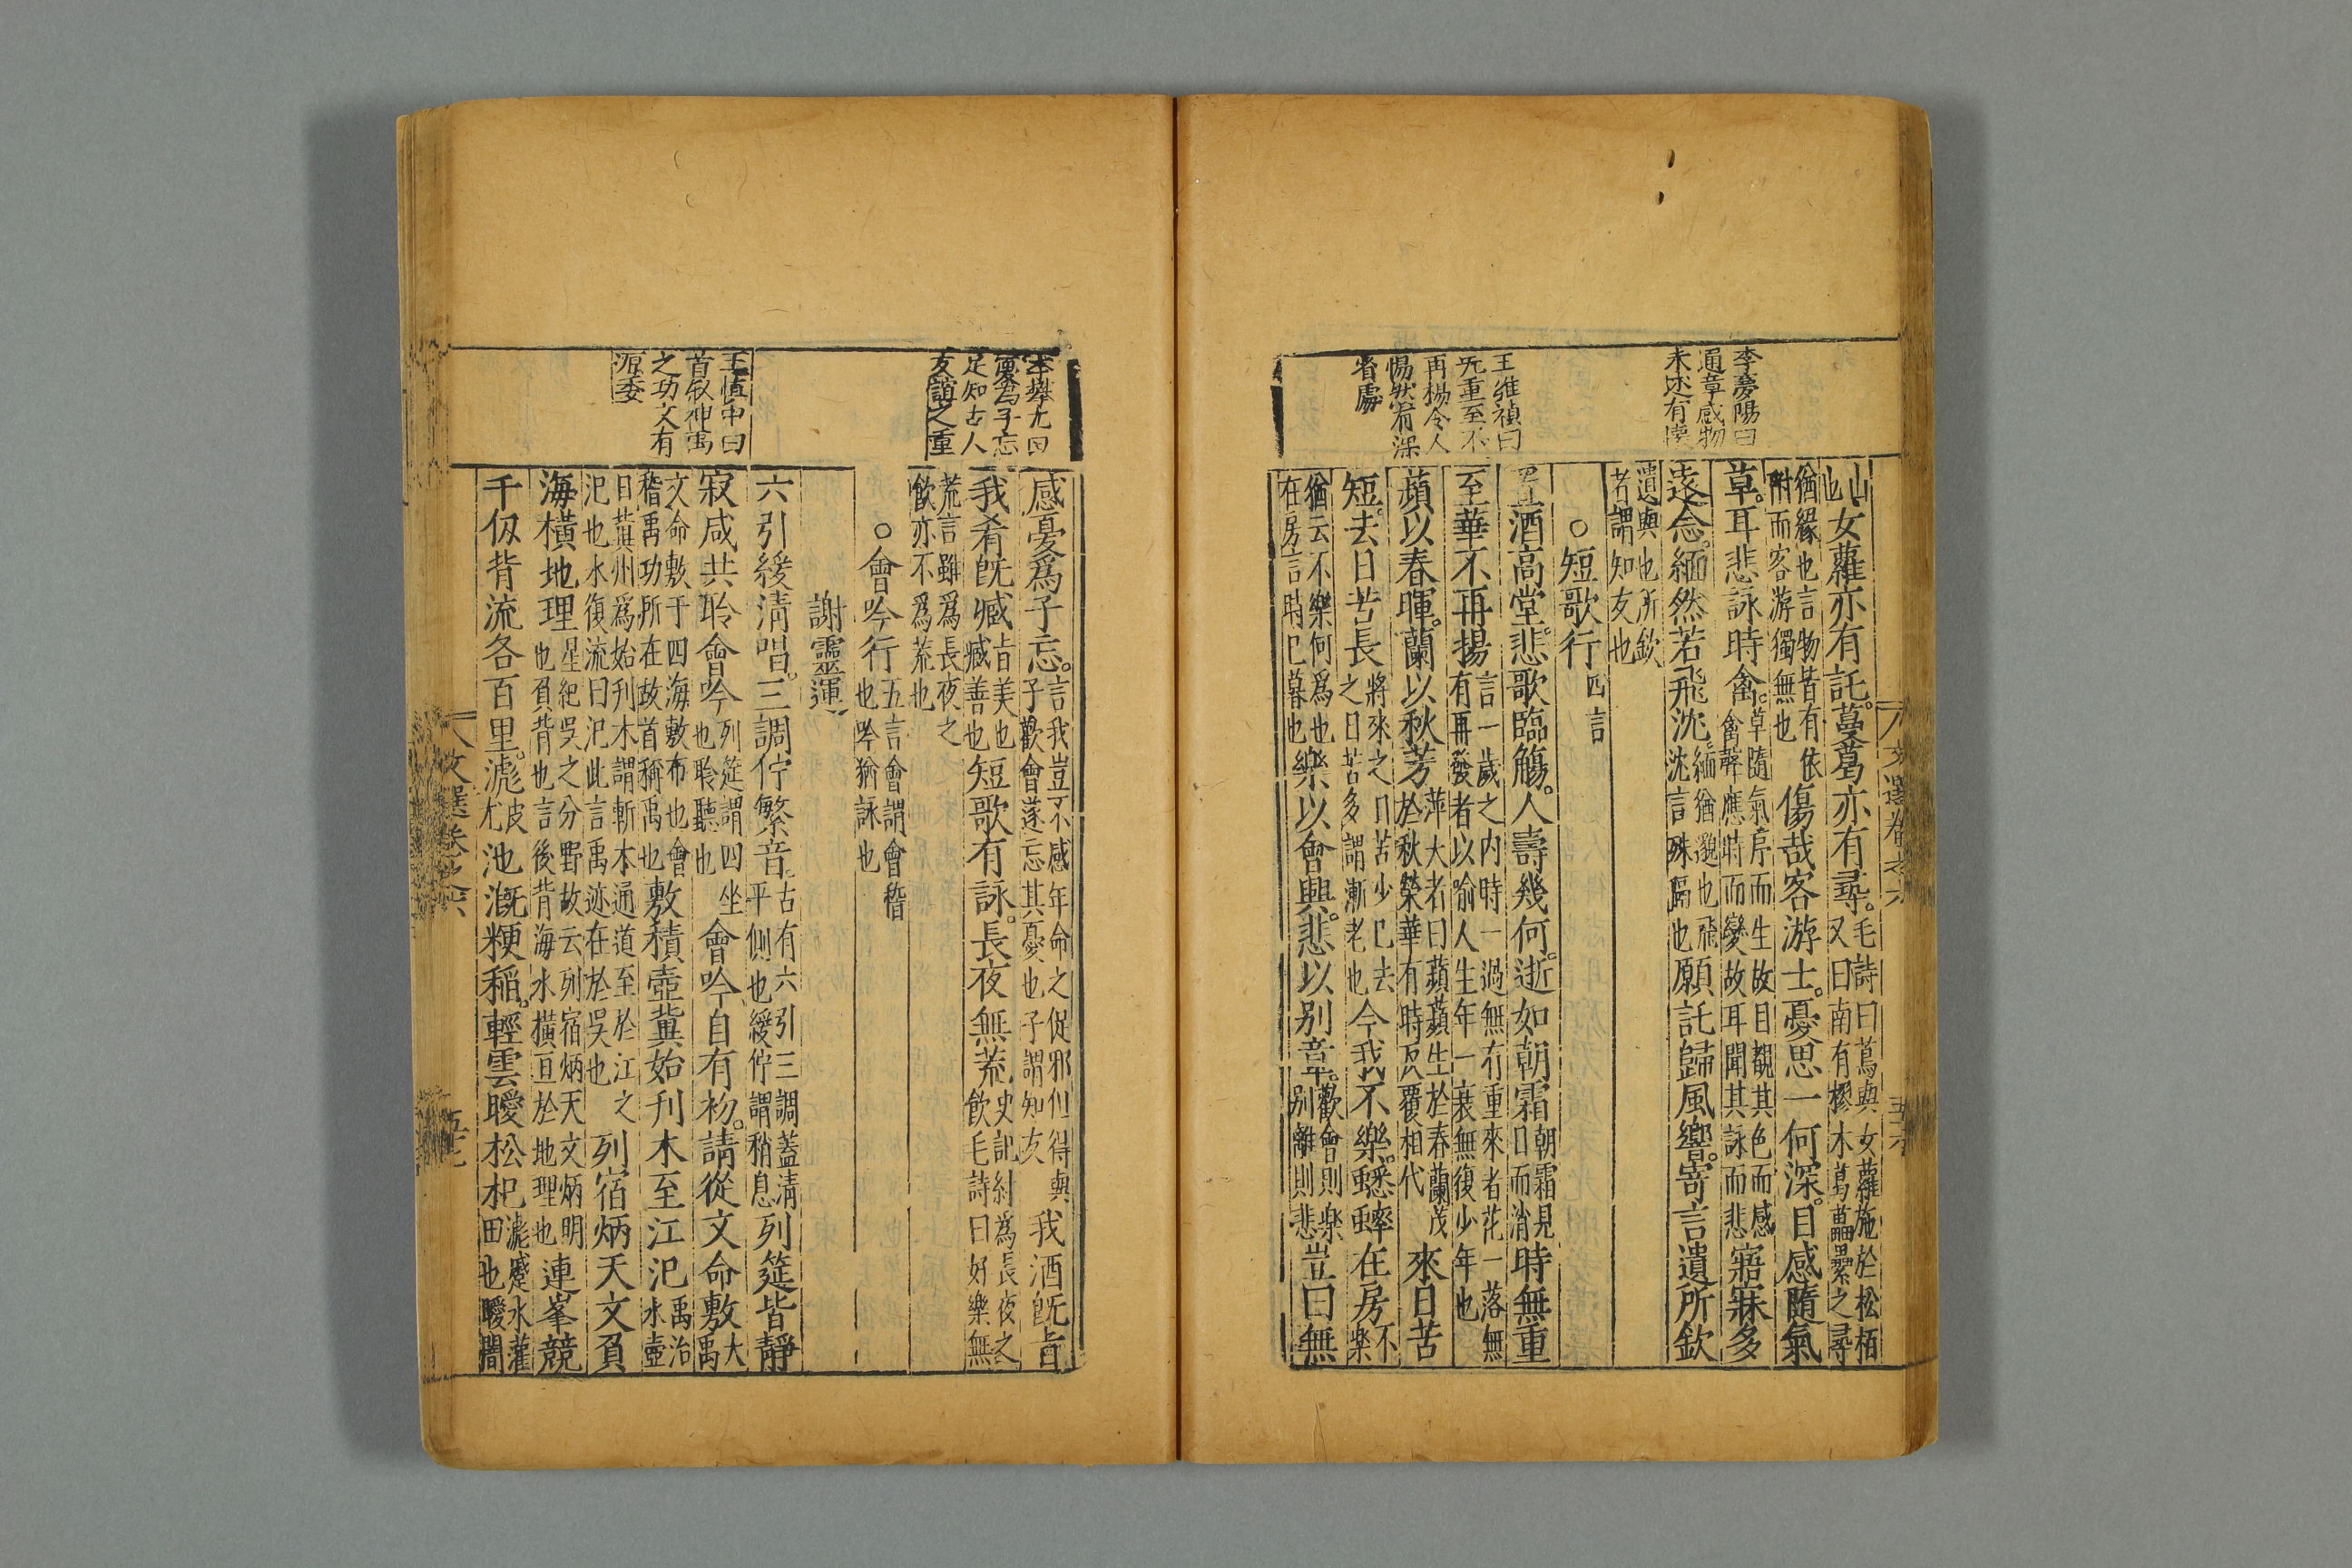 李夢陽曰
通章感物
未述有悽
王維禎曰
旡重至不
再揚令人
惕然省深
省處
山女蘿亦有託蔓葛亦有尋毛詩曰蔦與女蘿施於松栢
也又曰南有樛木葛藟纍之尋
猶緣也言物皆有依
附而客游獨無也
傷哉客游士憂思一何深目感隨氣
草耳悲詠時禽草隨氣序而生故目觀其色而感
禽聲應時而變故耳聞其詠而悲
寤寐多
遠念緬然若飛沈緬猶邈也飛
沈言殊隔也
願託歸風響寄言遺所欽
遺與也所欽
者謂知友也
○短歌行四言
置酒高堂悲歌臨觴人壽幾何逝如朝霜朝霜見
日而消
時無重
至華不再揚言一歲之内時一過無有重來者花一落無
有再發者以喻人生年一衰無復少年也
蘋以春暉蘭以秋芳萍大者曰蘋蘋生於春蘭茂
於秋榮華有時反覆相代
來日苦
短去日苦長將來之日苦少巳去
之日苦多謂漸老也
今我不樂蟋蟀在房不
樂
猶云不樂何為也
在房言時巳暮也
樂以會興悲以别章歡會則樂
别離則悲
豈曰無
文選卷之六
五十六
李攀尤曰
憂為子忘
足知古人
友誼之重
王慎中曰
首叙神禹
之功文有
源委
感憂為子忘言我豈不感年命之促邪但得與
子歡會遂忘其憂也子謂知友
我酒旣旨
我肴旣臧旨美也
臧善也
短歌有詠長夜無荒史記紂為長夜之
飲毛詩曰好樂無
荒言雖為長夜之
飲亦不為荒也
○會吟行五言會謂會稽
也吟猶詠也
謝靈運
六引緩清唱三調佇繁音古有六引三調蓋清
平側也緩佇謂稍息
列筵皆靜
寂咸共聆會吟列筵謂四坐
也聆聽也
會吟自有初請從文命敷大
禹
文命敷于四海敷布也會
稽禹功所在故首稱禹也
敷積壺冀始刋木至江汜禹治
水壺
日冀州為始刋木謂斬木通道至於江之
汜也水復流曰汜此言禹迹在於吳也
列宿炳天文負
海橫地理星紀吳之分野故云列宿炳天文炳明
也負背也言後背海水橫亘於地理也
連峯競
千仭背流各百里滮皮
尤
池漑粳稻輕雲曖松杞滮蹙水灌
田也曖間
文選卷之六
五十七